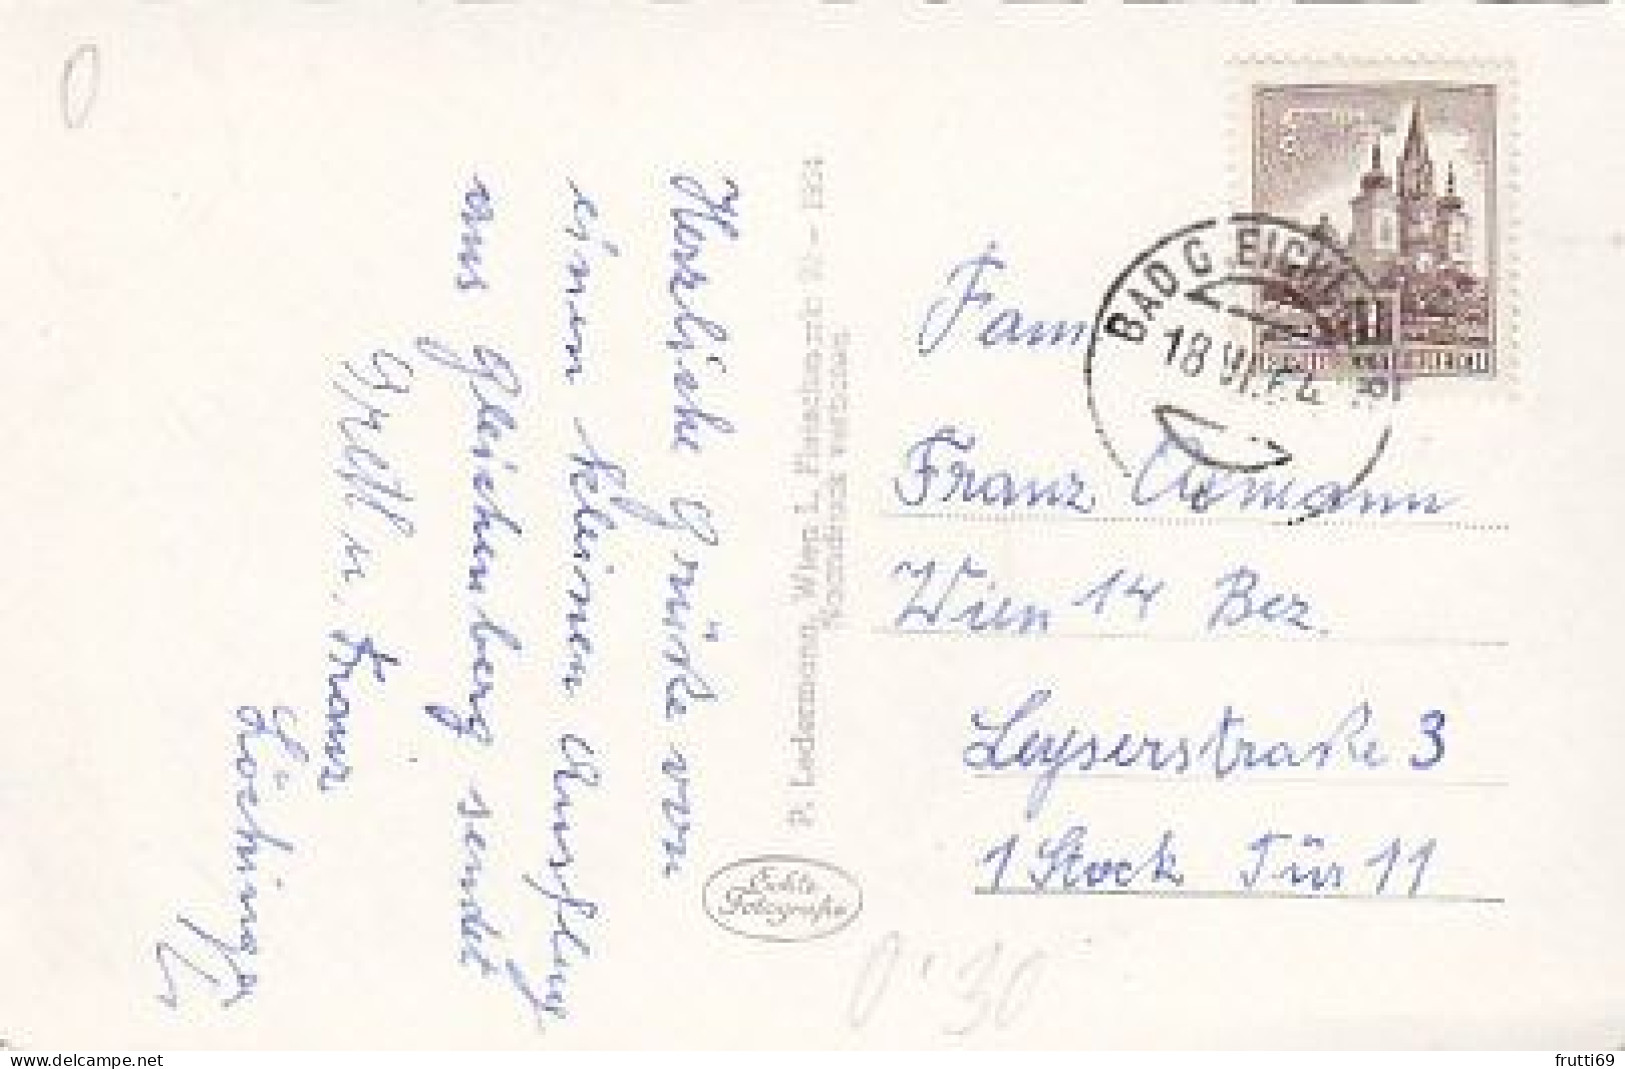 Herzliche Grüße von
einem kleinen Ausflug
aus Gleichenberg sendet
u. Franz
P. Ledermann, Wien I., Fleischmarkt 20 –
Nachdruck verboten.
Echte
Fotografie
BAD GLEICHENBERG
18.VI.64
1
Fam
Franz
Wien 14 Bez.
Leyserstraße 3
1 Stock Tür 11
0'30
delcampe.net
frutti69